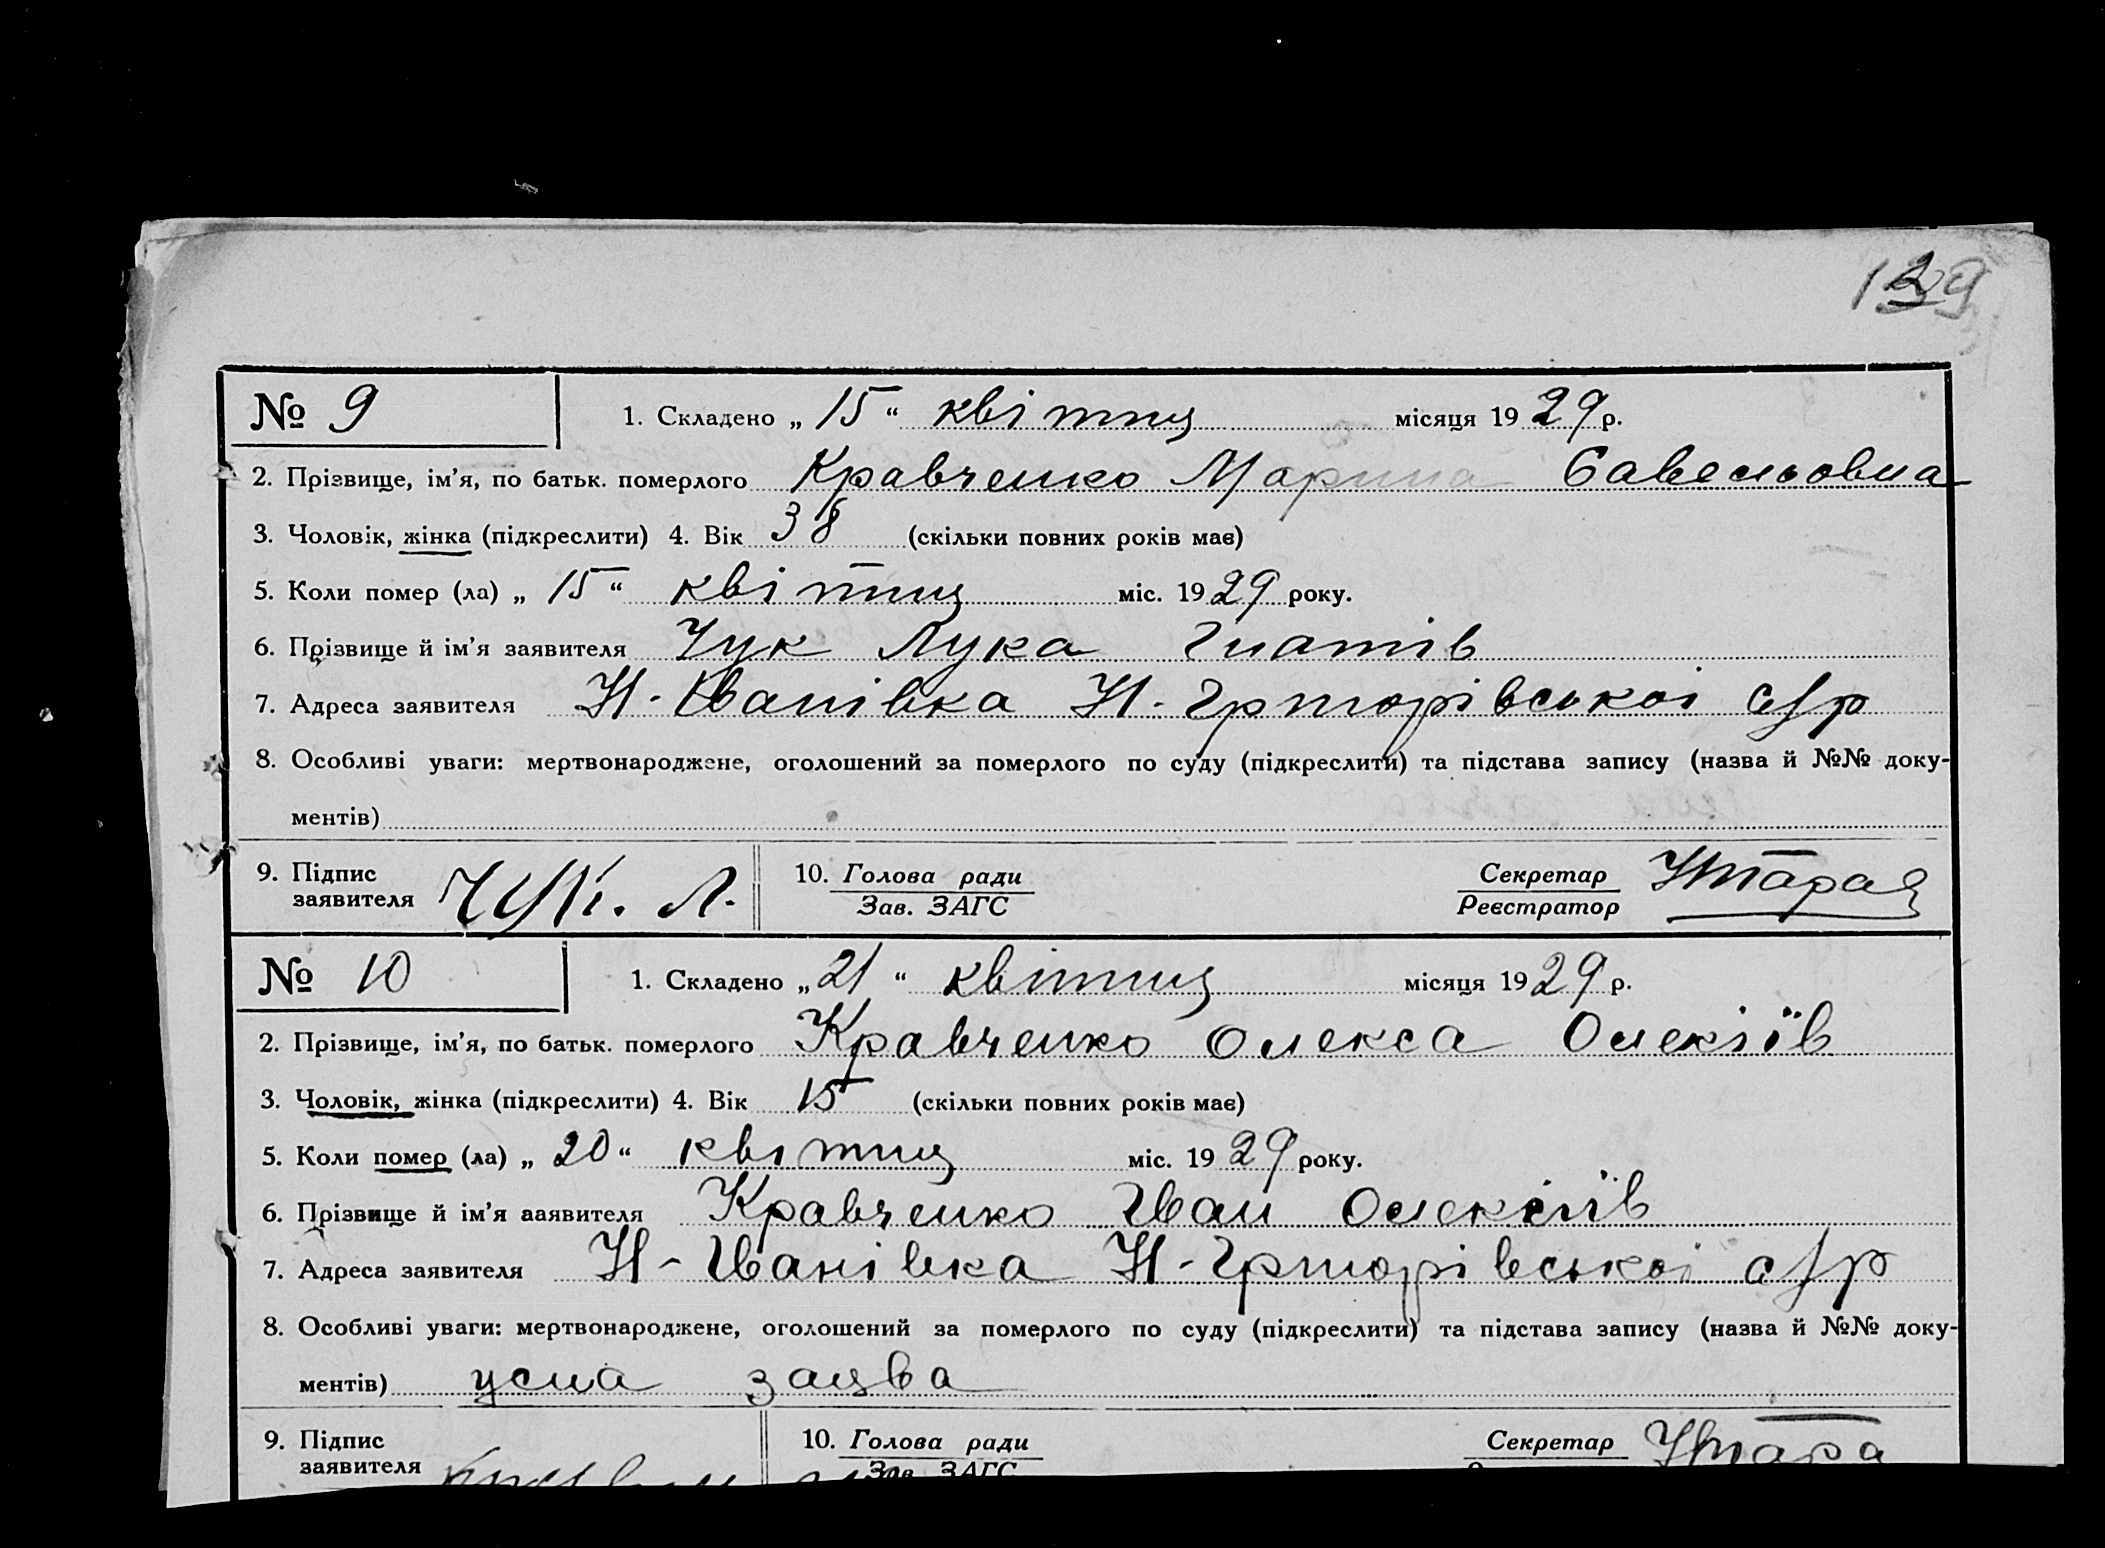 129
№ 9 1. Складено „ 15 “ квітня місяця 1929 р.
2. Прізвище, ім’я, по батьк. померлого Кравченко Марина Савельовна
3. Чоловік, жінка (підкреслити) 4. Вік 38 (скільки повних років має)
5. Коли помер (ла) „ 15 “ квітня міс. 1929 року.
6. Прізвище й ім’я заявителя Чук Лука Гнатів
7. Адреса заявителя Н-Іванівка Н-Григорівської с/р
8. Особливі уваги: мертвонароджене, оголошений за померлого по суду (підкреслити) та підстава запису (назва й №№ доку-
ментів)
9. Підпис заявителя Чук. Л. 10. Голова ради Зав. ЗАГС Секретар Реєстратор
№ 10 1. Складено „ 21 “ квітня місяця 1929 р.
2. Прізвище, ім’я, по батьк. померлого Кравченко Олекса Олексіїв
3. Чоловік, жінка (підкреслити) 4. Вік 15 (скільки повних років має)
5. Коли помер (ла) „ 20 “ квітня міс. 1929 року.
6. Прізвище й ім’я заявителя Кравченко Іван Олексіїв
7. Адреса заявителя Н-Іванівка Н-Григорівської с/р
8. Особливі уваги: мертвонароджене, оголошений за померлого по суду (підкреслити) та підстава запису (назва й №№ доку-
ментів) усна заява
9. Підпис заявителя 10. Голова ради Зав. ЗАГС Секретар